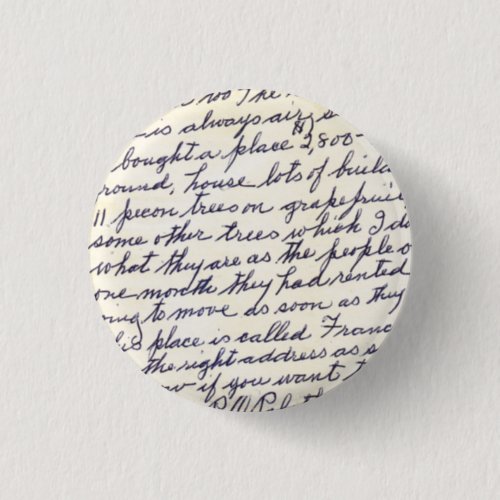 too The
is always air, s
bought a place $2,800-
round, house lots of build
11 pecon trees on grapefruit
some other trees which I do
what they are as the people o
one month they had rented
ing to move as soon as they
his place is called Franc
the right address as s
w if you want t